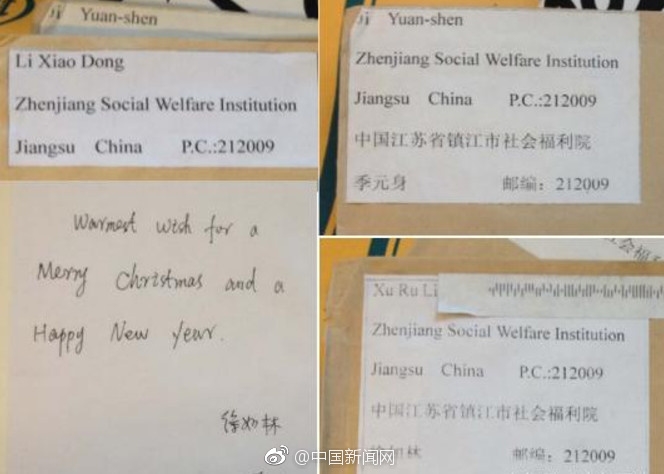 Yuan-shen
Li Xiao Dong
Zhenjiang Social Welfare Institution
Jiangsu China P.C.:212009
Warmest wish for a
Merry Christmas and a
Happy New Year.
徐如林
Ji Yuan-shen
Zhenjiang Social Welfare Institution
Jiangsu China P.C.:212009
中国江苏省镇江市社会福利院
季元身 邮编：212009
会福利
Xu Ru Li
Zhenjiang Social Welfare Institution
Jiangsu China P.C.:212009
中国江苏省镇江市社会福利院
徐如林 邮编：212009
@中国新闻网